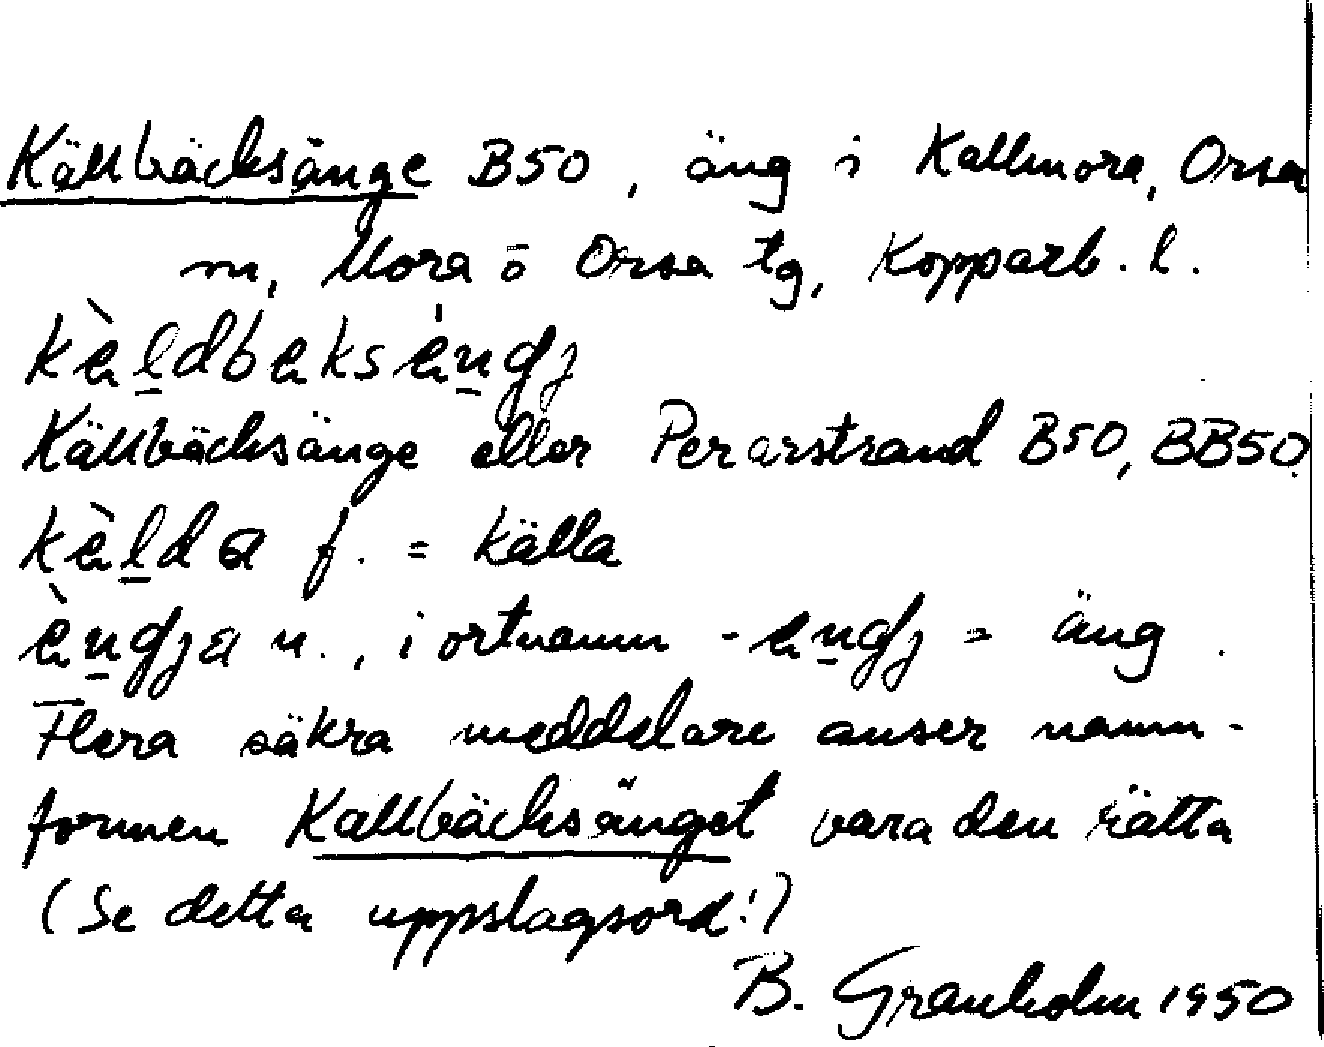 Källbäcksänge B50, äng i Kallmora, Orsa
m, Mora o Orsa tg, Kopparb. l.
kèldbeksèngj
Källbäcksänge eller Perarstrand B50, BB50
kèlda f. = källa
èngja n., i ortnamn -engj = äng.
Flera säkra meddelare anser namn-
formen Kallbäcksänget vara den rätta
(Se detta uppslagsord!)
B. Granholm 1950